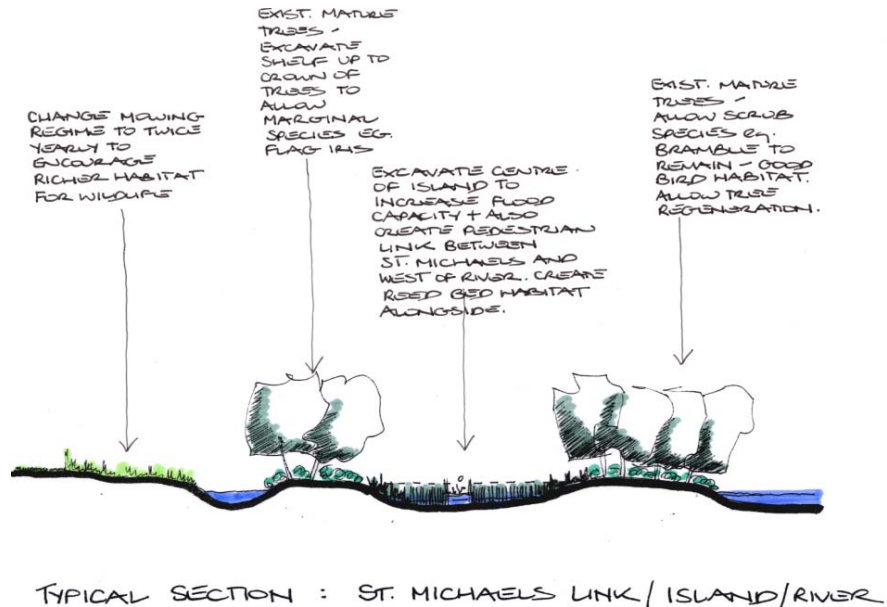 CHANGE MOWING
REGIME TO TWICE
YEARLY TO
ENCOURAGE
RICHER HABITAT
FOR WILDLIFE
EXIST. MATURE
TREES -
EXCAVATE
SHELF UP TO
CROWN OF
TREES TO
ALLOW
MARGINAL
SPECIES EG.
FLAG IRIS
EXCAVATE CENTRE
OF ISLAND TO
INCREASE FLOOD
CAPACITY + ALSO
CREATE PEDESTRIAN
LINK BETWEEN
ST. MICHAELS AND
WEST OF RIVER. CREATE
REED BED HABITAT
ALONGSIDE.
EXIST. MATURE
TREES -
ALLOW SCRUB
SPECIES eg.
BRAMBLE TO
REMAIN - GOOD
BIRD HABITAT.
ALLOW TREE
REGENERATION.
TYPICAL SECTION : ST. MICHAELS LINK/ISLAND/RIVER